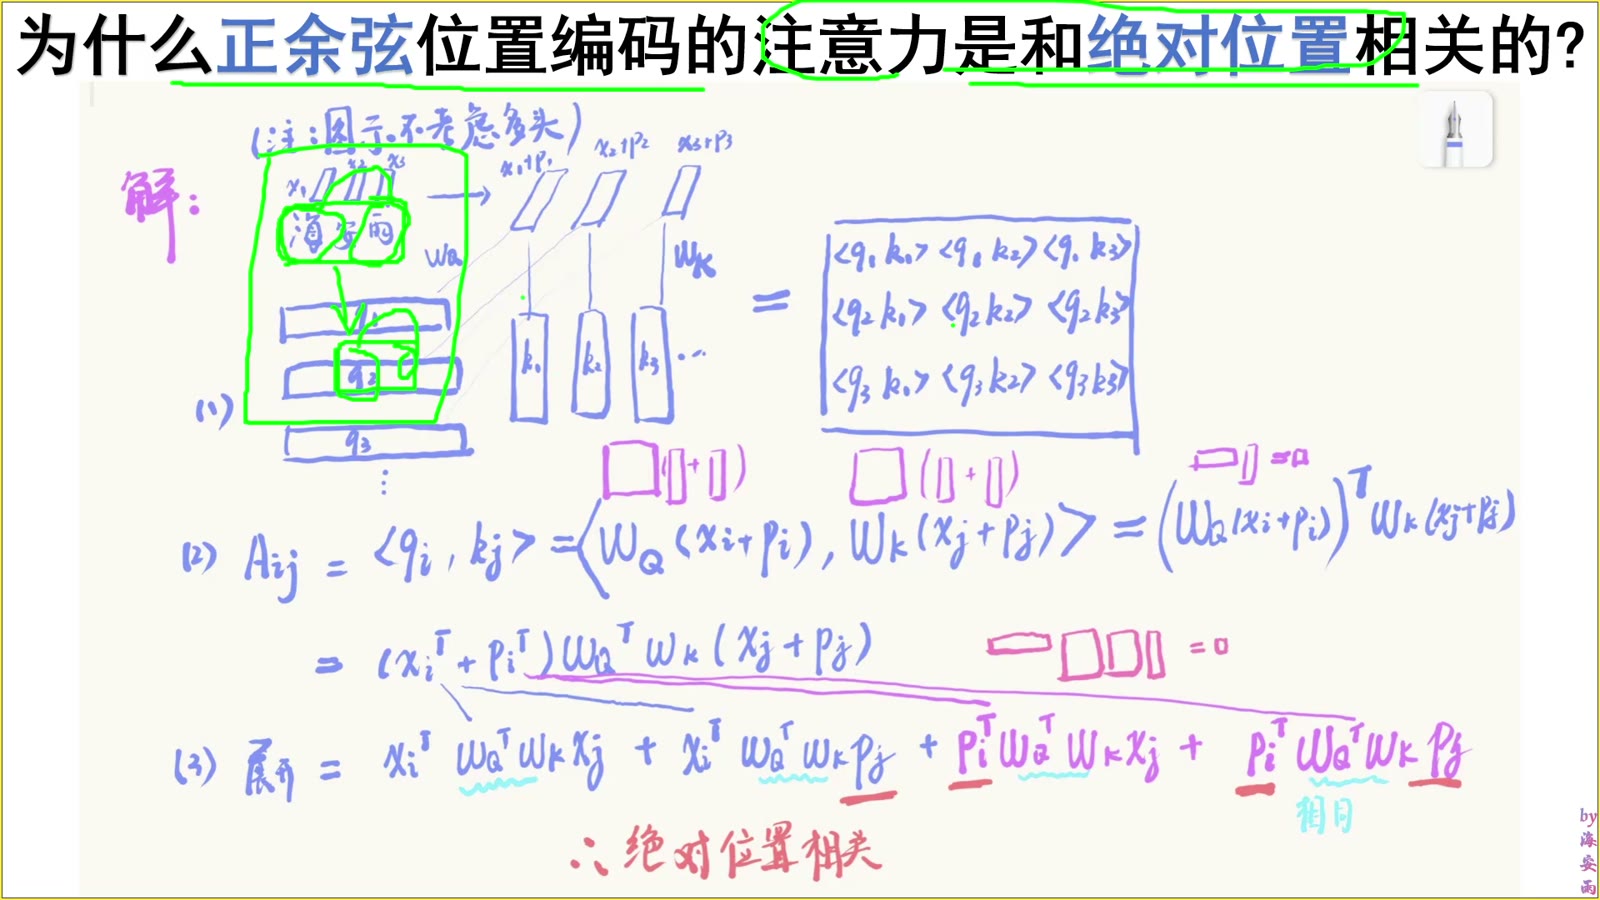 为什么正余弦位置编码的注意力是和绝对位置相关的?
(注:图示不考虑多头)
解:
x₁ x₂ x₃
x₁+p₁ x₂+p₂ x₃+p₃
海安雨
W_Q W_K
q₁
q₂
q₃
⋮
k₁ k₂ k₃ ...
=
<q₁ k₁> <q₁ k₂> <q₁ k₃>
<q₂ k₁> <q₂ k₂> <q₂ k₃>
<q₃ k₁> <q₃ k₂> <q₃ k₃>
(1)
(2) Aij = <qi, kj> = <W_Q (xi+pi), W_K (xj+pj)> = (W_Q (xi+pi))ᵀ W_K (xj+pj)
= (xiᵀ + piᵀ) W_Qᵀ W_K (xj + pj)
(3) 展开 = xiᵀ W_Qᵀ W_K xj + xiᵀ W_Qᵀ W_K pj + piᵀ W_Qᵀ W_K xj + piᵀ W_Qᵀ W_K pj
∴ 绝对位置相关
by
海
安
雨